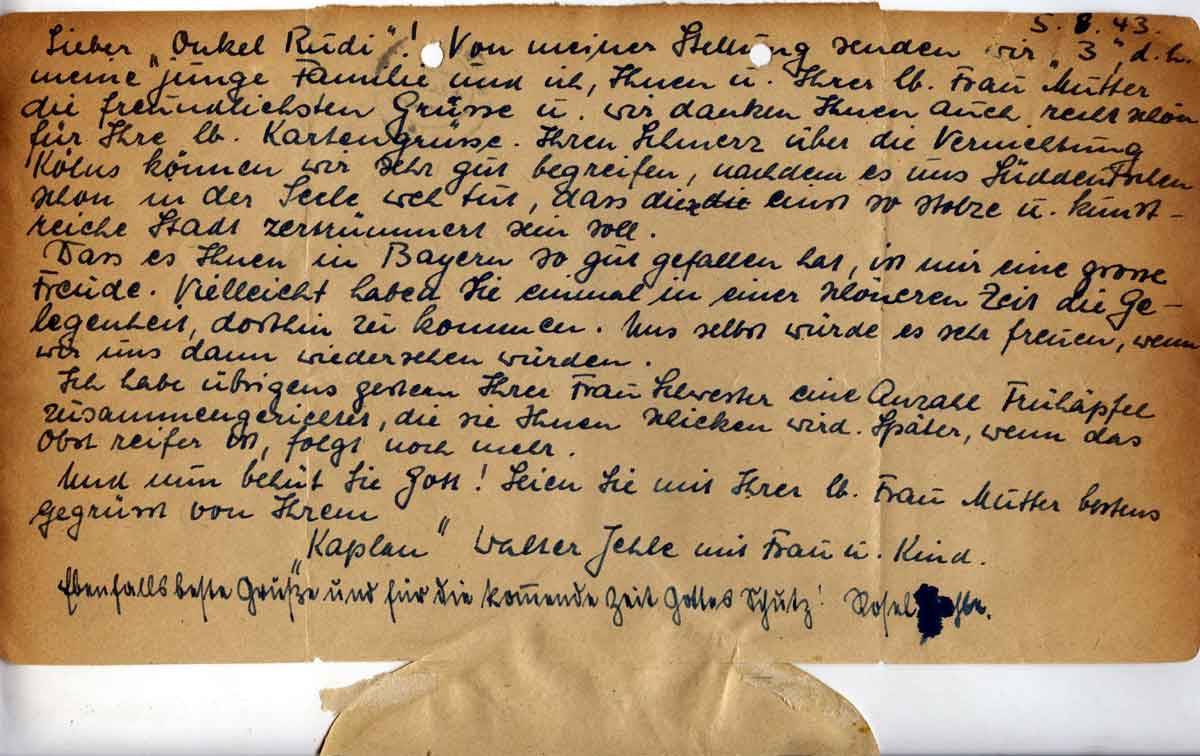 5. 8. 43.
Lieber „Onkel Rudi"! Von meiner Stellung senden wir „3", d. h.
meine junge Familie und ich, Ihnen u. Ihrer lb. Frau Mutter
die freundlichsten Grüsse u. wir danken Ihnen auch recht schön
für Ihre lb. Kartengrüsse. Ihren Schmerz über die Vernichtung
Kölns können wir sehr gut begreifen, nachdem es uns Süddeutschen
schon in der Seele weh tut, dass die einst so stolze u. kunst-
reiche Stadt zertrümmert sein soll.
Dass es Ihnen in Bayern so gut gefallen hat, ist mir eine grosse
Freude. Vielleicht haben Sie einmal in einer schöneren Zeit die Ge-
legenheit, dorthin zu kommen. Uns selbst würde es sehr freuen, wenn
wir uns dann wiedersehen würden.
Ich habe übrigens gestern Ihrer Frau Schwester eine Anzahl Frühäpfel
zusammengerichtet, die sie Ihnen schicken wird. Später, wenn das
Obst reifer ist, folgt noch mehr.
Und nun behüt Sie Gott! Seien Sie mit Ihrer lb. Frau Mutter bestens
gegrüsst von Ihrem
„Kaplan" Walter Jehle mit Frau u. Kind.
Ebenfalls beste Grüße und für die kommende Zeit Gottes Schutz! Rosel